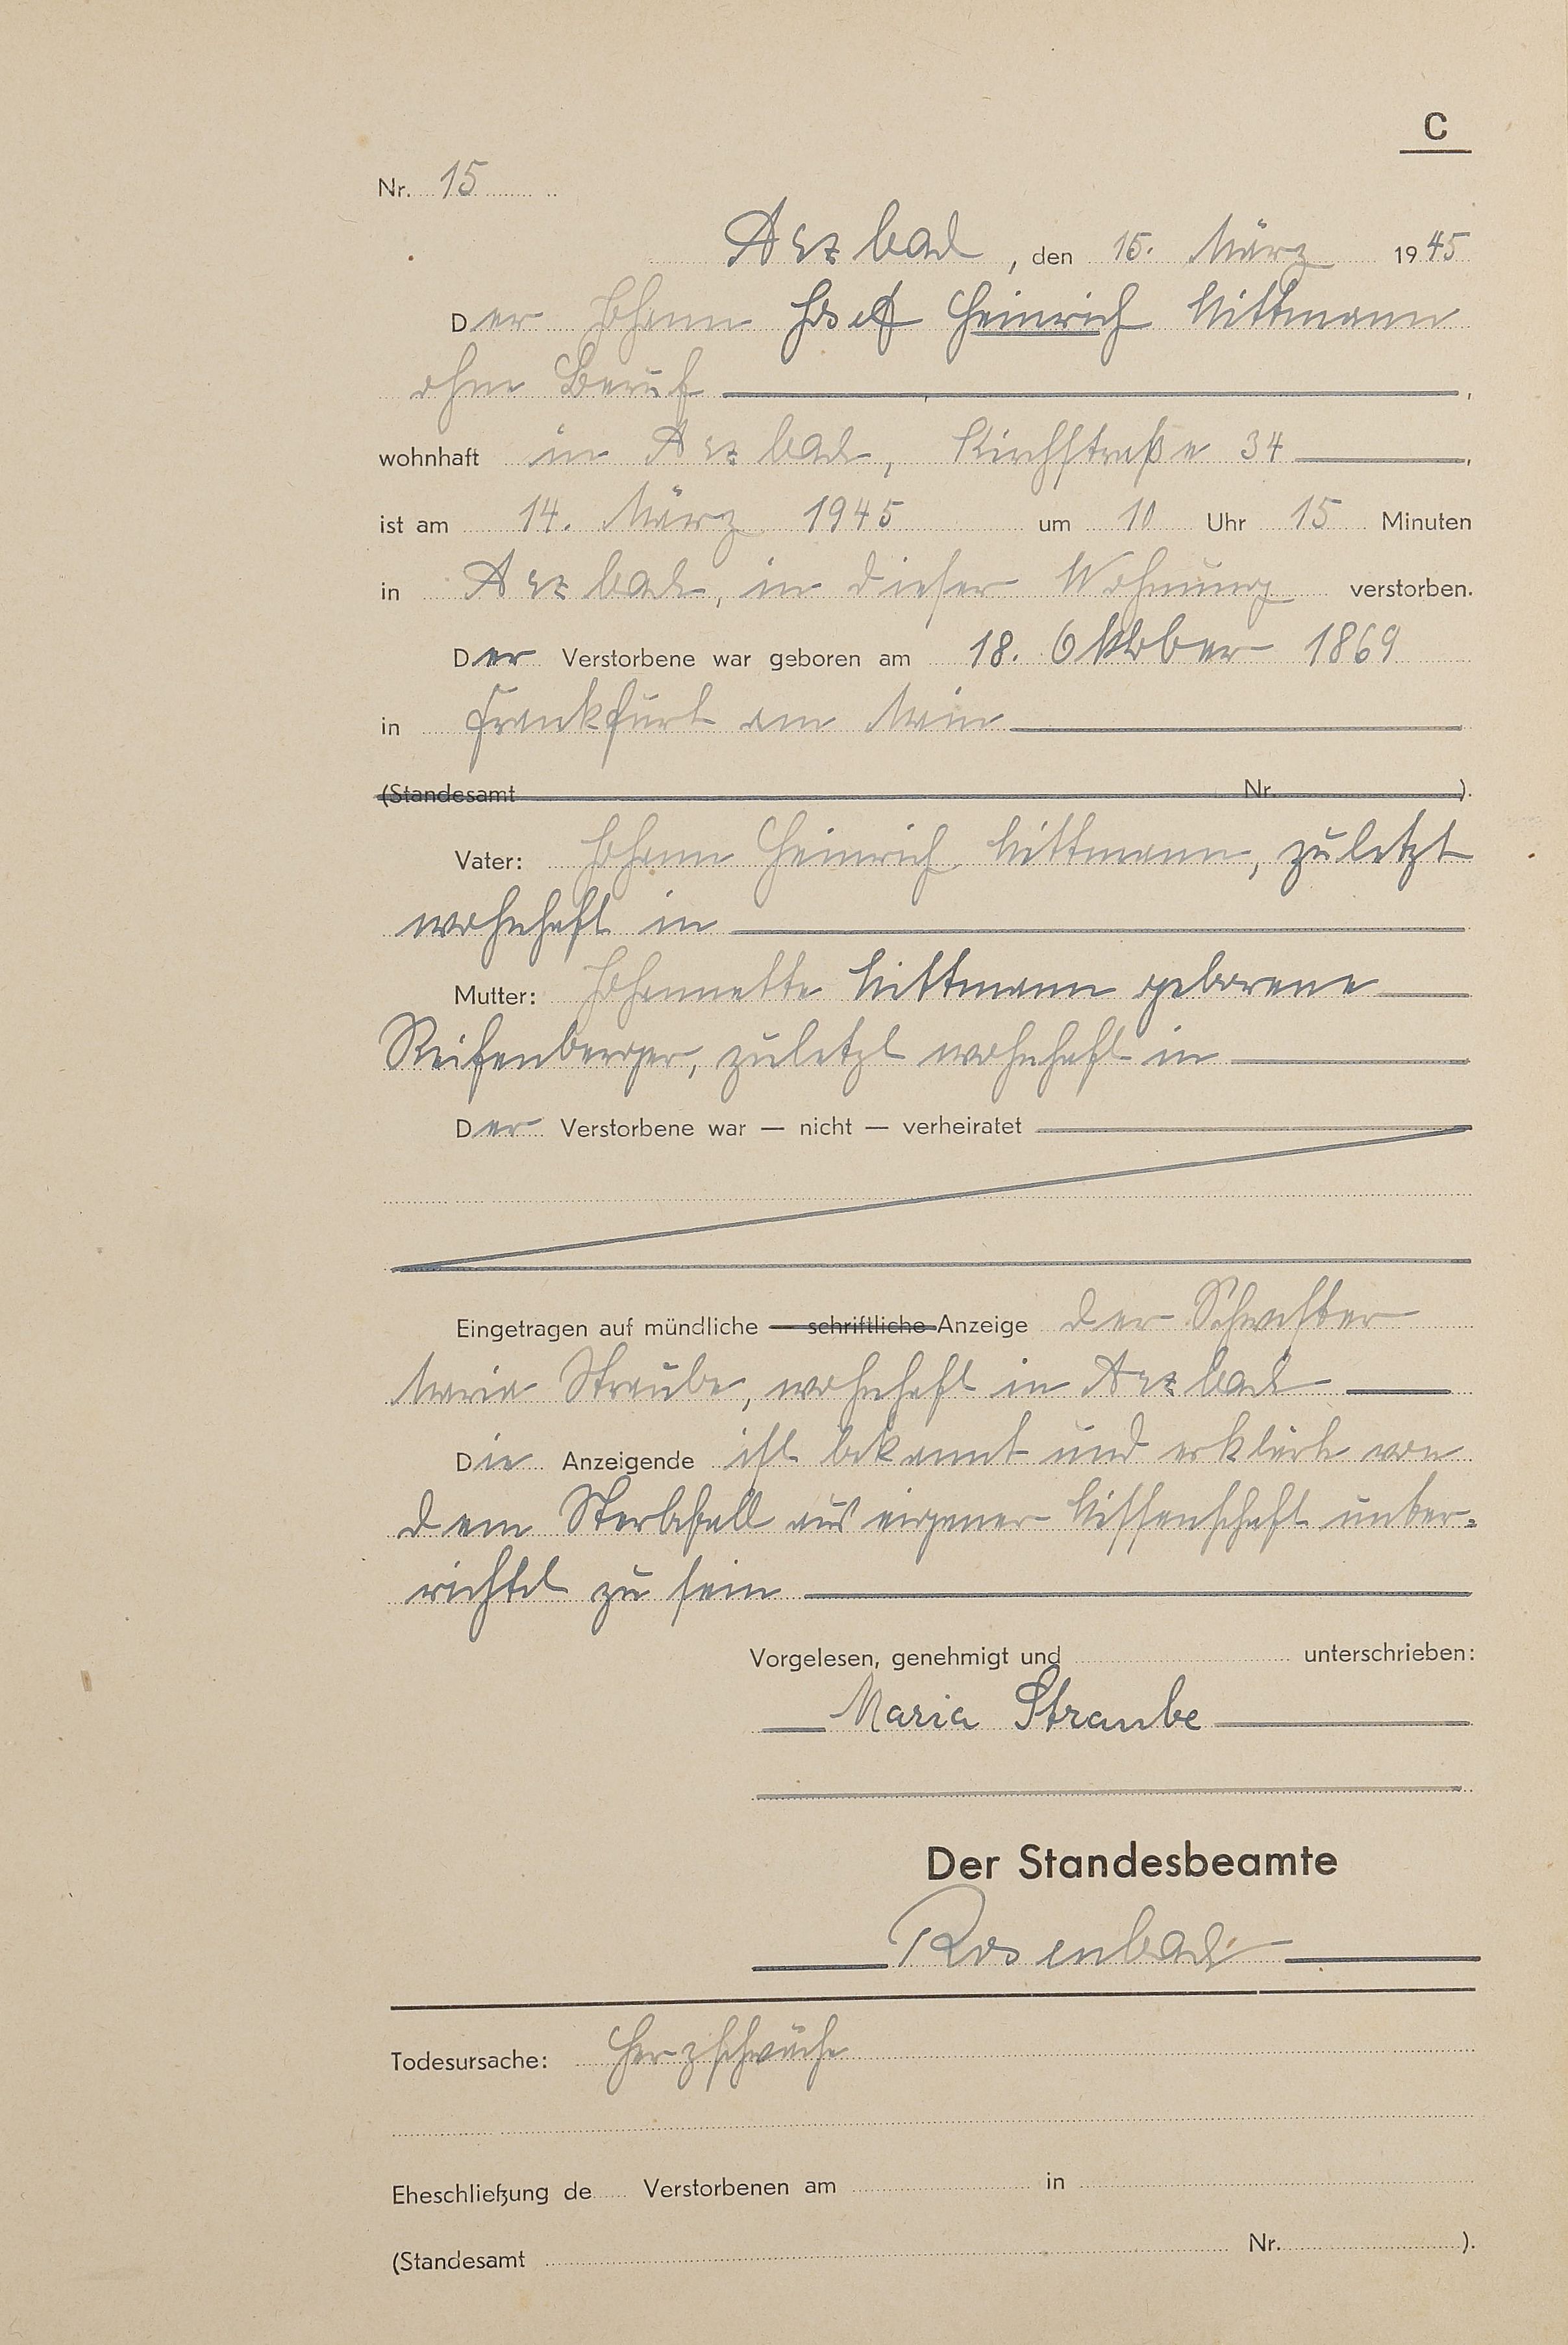 C
Nr. 15
Arzbach, den 15. März 1945
Der Johann Josef Heinrich Wittmann
ohne Beruf
wohnhaft in Arzbach, Kirchstraße 34
ist am 14. März 1945 um 10 Uhr 15 Minuten
in Arzbach, in dieser Wohnung verstorben.
Der Verstorbene war geboren am 18. Oktober 1869
in Frankfurt am Main
(Standesamt Nr. ).
Vater: Johann Heinrich Wittmann, zuletzt
wohnhaft in
Mutter: Johannette Wittmann geborene
Reifenberger, zuletzt wohnhaft in
Der Verstorbene war — nicht — verheiratet
Eingetragen auf mündliche — schriftliche Anzeige der Schwester
Maria Straube, wohnhaft in Arzbach
Die Anzeigende ist bekannt und erklärte von
dem Sterbefall aus eigener Wissenschaft unter-
richtet zu sein
Vorgelesen, genehmigt und unterschrieben:
Maria Straube
Der Standesbeamte
Rosenbach
Todesursache: Herzschwäche
Eheschließung de Verstorbenen am in
(Standesamt Nr. ).